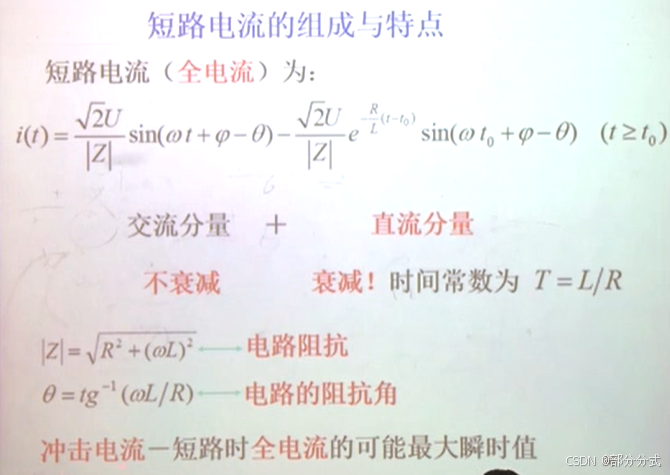 短路电流的组成与特点
短路电流（全电流）为：
i(t) = \frac{\sqrt{2}U}{|Z|} sin(ωt+φ−θ) − \frac{\sqrt{2}U}{|Z|} e^{−\frac{R}{L}(t−t_0)} sin(ωt_0+φ−θ) (t≥t_0)
交流分量 + 直流分量
不衰减 衰减！时间常数为 T=L/R
|Z|=\sqrt{R^2+(ωL)^2} ⟷ 电路阻抗
θ=tg^{-1}(ωL/R) ⟷ 电路的阻抗角
冲击电流－短路时全电流的可能最大瞬时值
CSDN @部分分式